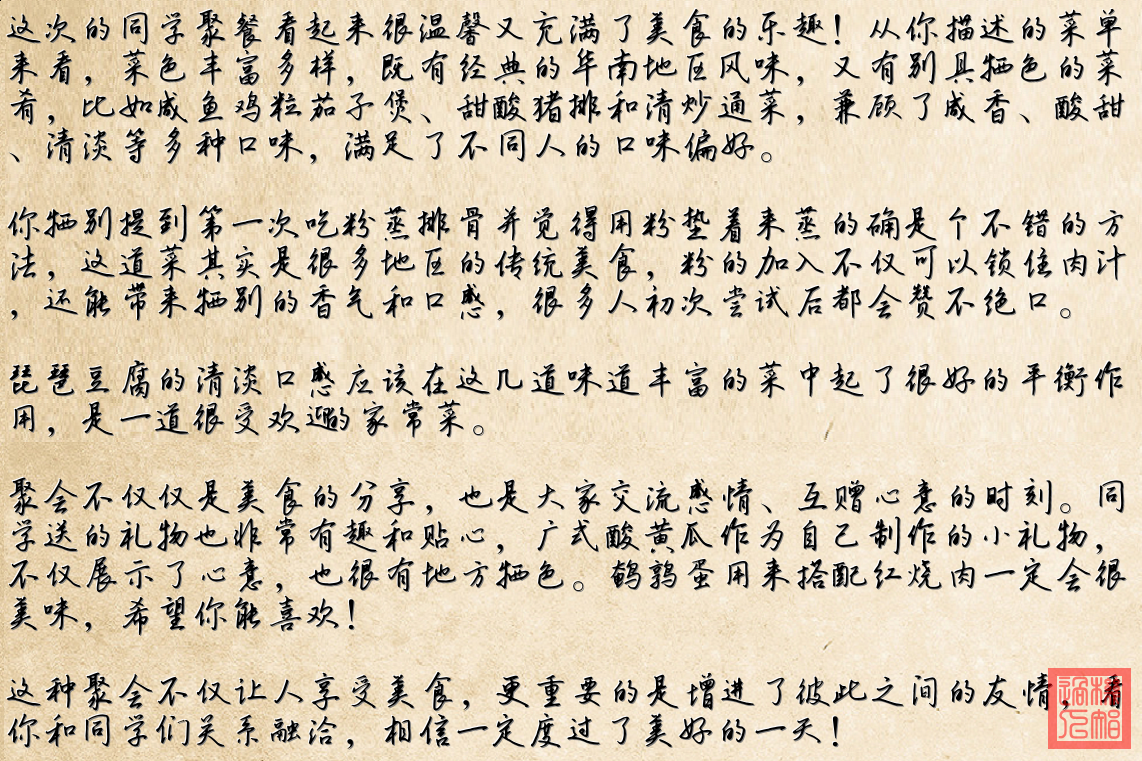 这次的同学聚餐看起来很温馨又充满了美食的乐趣！从你描述的菜单
来看，菜色丰富多样，既有经典的华南地区风味，又有别具特色的菜
肴，比如咸鱼鸡粒茄子煲、甜酸猪排和清炒通菜，兼顾了咸香、酸甜
、清淡等多种口味，满足了不同人的口味偏好。
你特别提到第一次吃粉蒸排骨并觉得用粉垫着来蒸的确是个不错的方
法，这道菜其实是很多地区的传统美食，粉的加入不仅可以锁住肉汁
，还能带来特别的香气和口感，很多人初次尝试后都会赞不绝口。
琵琶豆腐的清淡口感应该在这几道味道丰富的菜中起了很好的平衡作
用，是一道很受欢迎的家常菜。
聚会不仅仅是美食的分享，也是大家交流感情、互赠心意的时刻。同
学送的礼物也非常有趣和贴心，广式酸黄瓜作为自己制作的小礼物，
不仅展示了心意，也很有地方特色。鹌鹑蛋用来搭配红烧肉一定会很
美味，希望你能喜欢！
这种聚会不仅让人享受美食，更重要的是增进了彼此之间的友情，看
你和同学们关系融洽，相信一定度过了美好的一天！